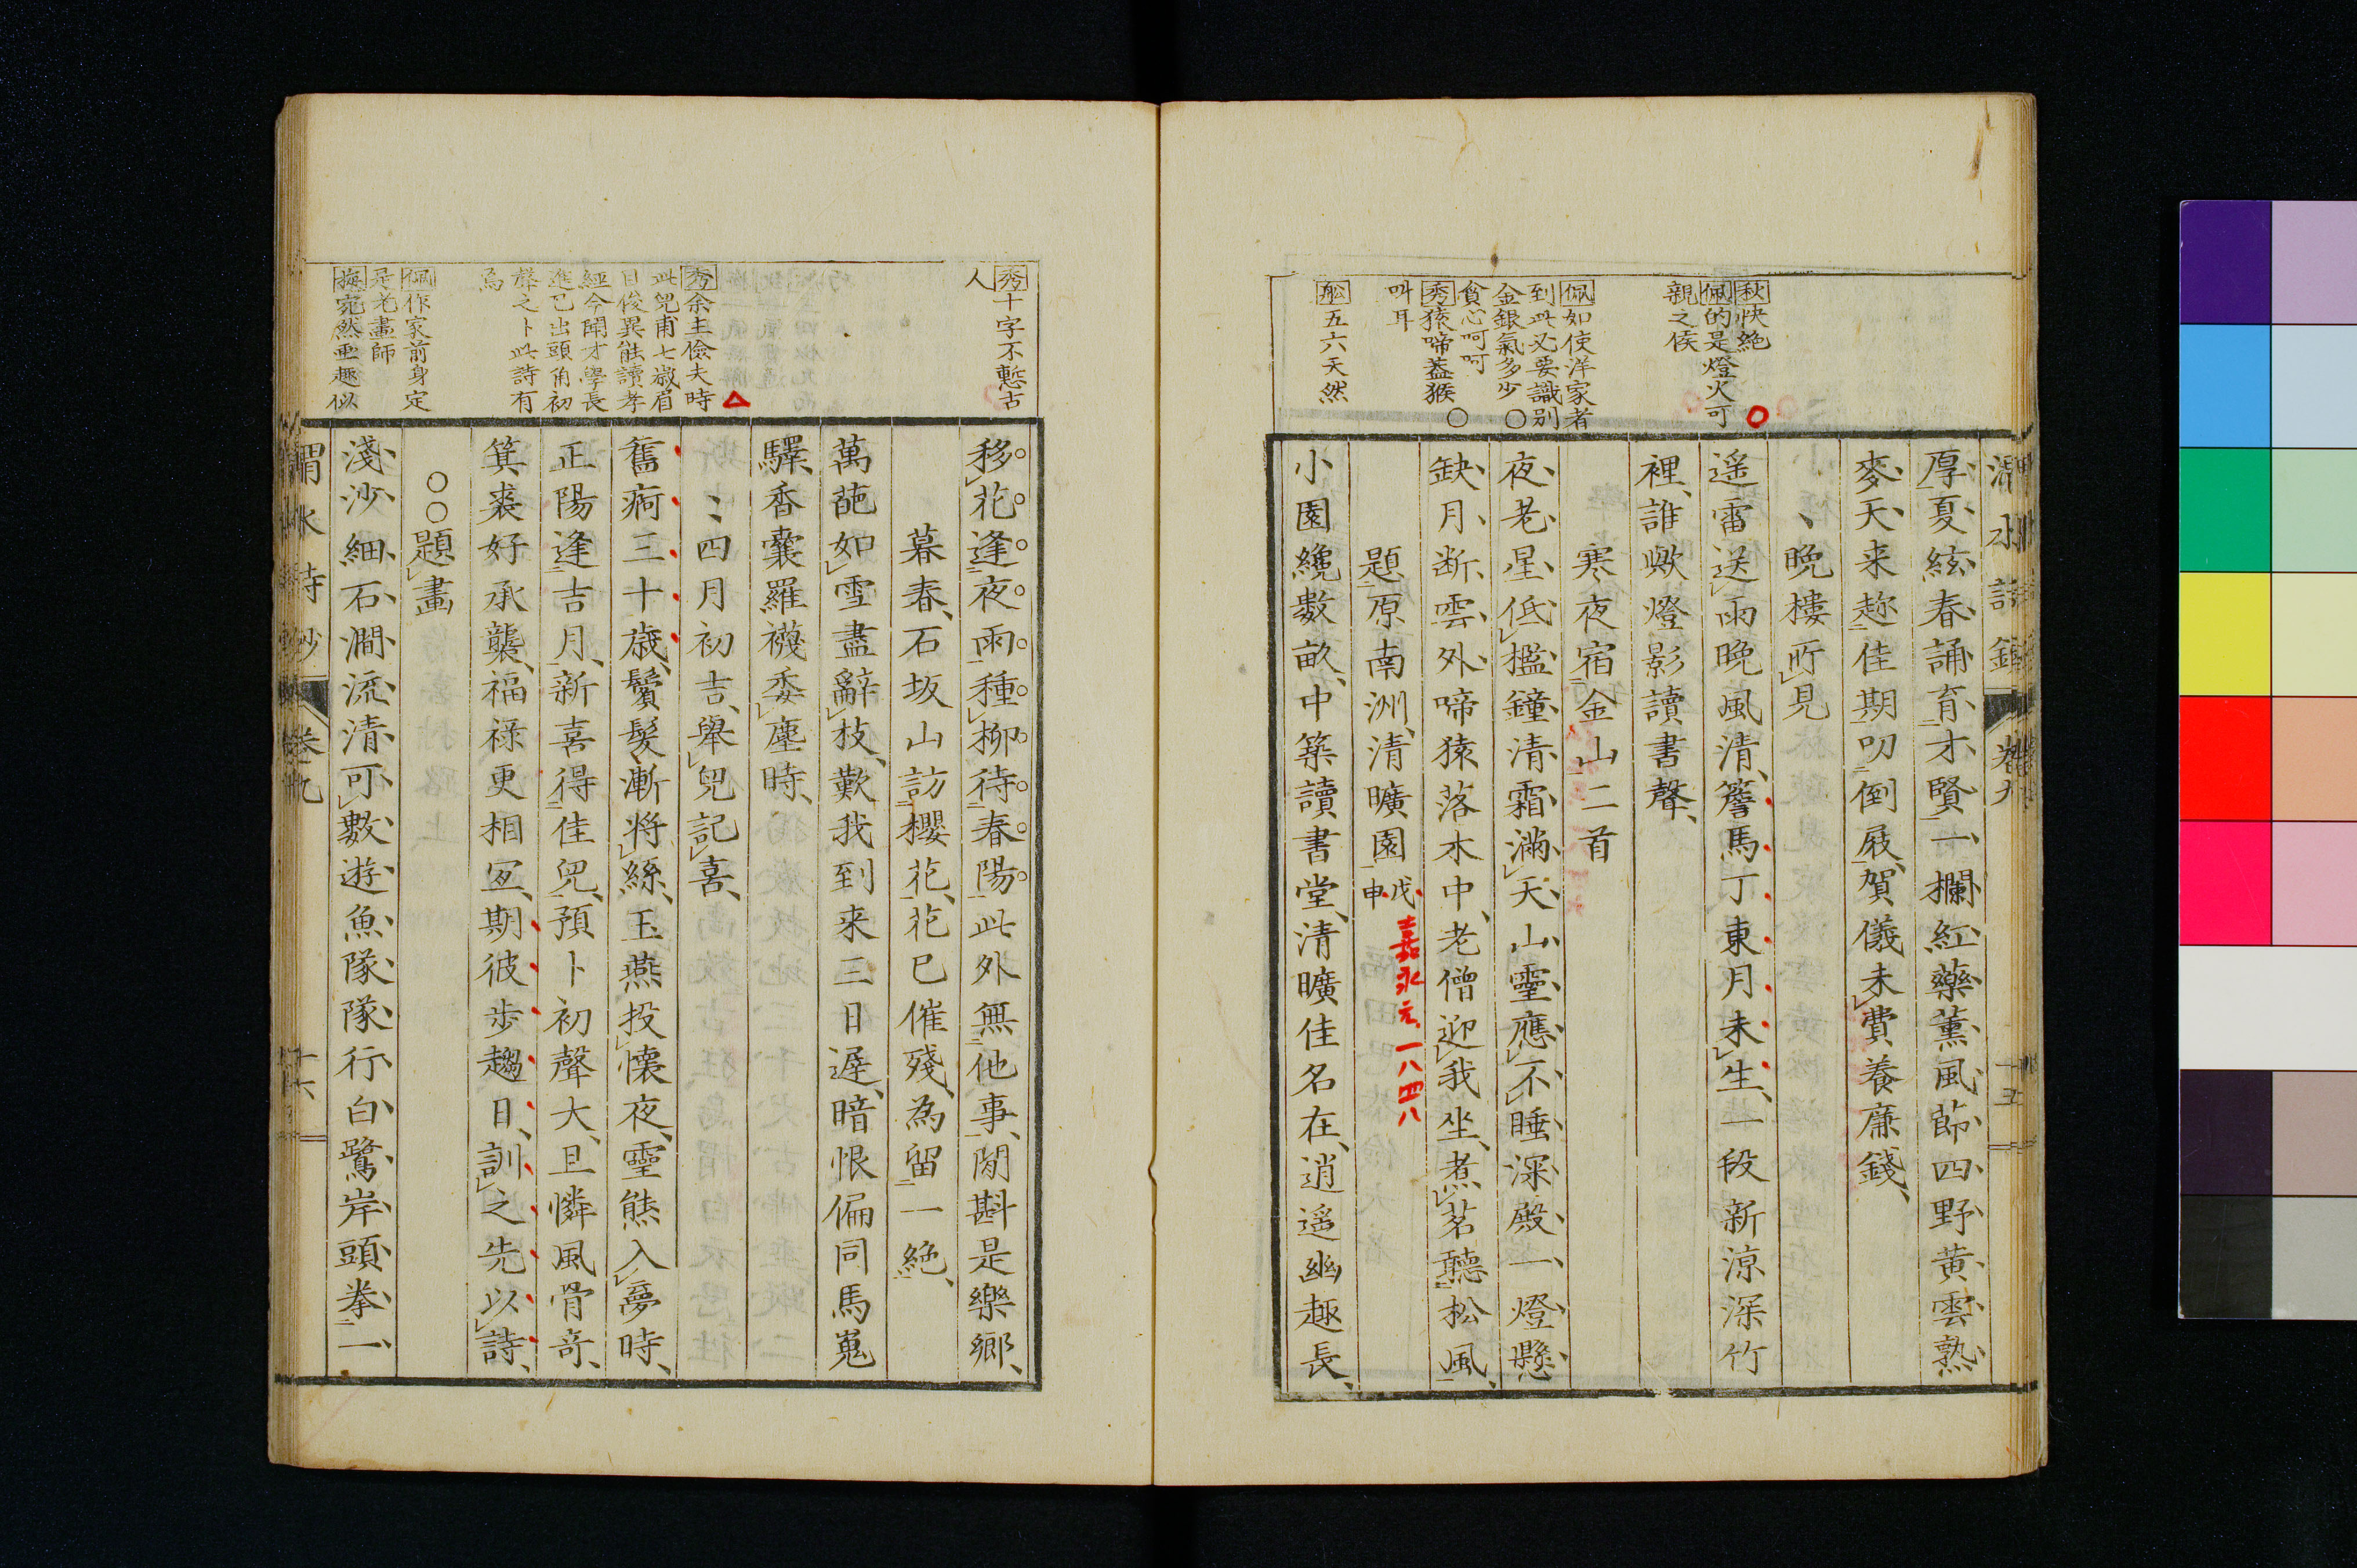 厚夏絃春誦育才賢一欄紅藥薰風節四野黄雲熟
麥天来趂佳期叨倒屐賀儀未費養廉錢
晩樓所見
遥雷送雨晩風清簷馬丁東月未生一段新凉深竹
裡誰歟燈影讀書聲
寒夜宿金山二首
夜老星低檻鐘清霜滿天山靈應不睡深殿一燈懸
缺月断雲外啼猿落木中老僧迎我坐煮茗聽松風
題原南洲清曠園戊申
嘉永元、一八四八
小園纔數畝中築讀書堂清曠佳名在逍遥幽趣長
秋快絶
佩的是燈火可
親之候
佩如使洋家者
到此必要識別
金銀氣多少
貪心呵呵
秀猿啼蓋猴
叫耳
舩五六天然
卷九
十五
移花逢夜雨種柳待春陽此外無他事閒斟是樂郷
暮春石坂山訪櫻花花已催殘為留一絶
萬葩如雪盡辭枝歎我到来三日遲暗恨偏同馬嵬
驛香囊羅襪委塵時
四月初吉舉兒記喜
舊痾三十歳鬢髮漸将絲玉燕投懐夜靈熊入夢時
正陽逢吉月新喜得佳兒預卜初聲大且憐風骨竒
箕裘好承襲福禄更相宜期彼歩趨日訓之先以詩
○○題畫
淺沙細石澗流清可數遊魚隊隊行白鷺岸頭拳一
秀十字不慙古
人
秀余主儉夫時
此兒甫七歳眉
目俊異能讀孝
經今聞才學長
進已出頭角初
聲之卜此詩有
焉
佩作家前身定
是老畫師
撫宛然垂趣似
渭水詩鈔
卷九
十六